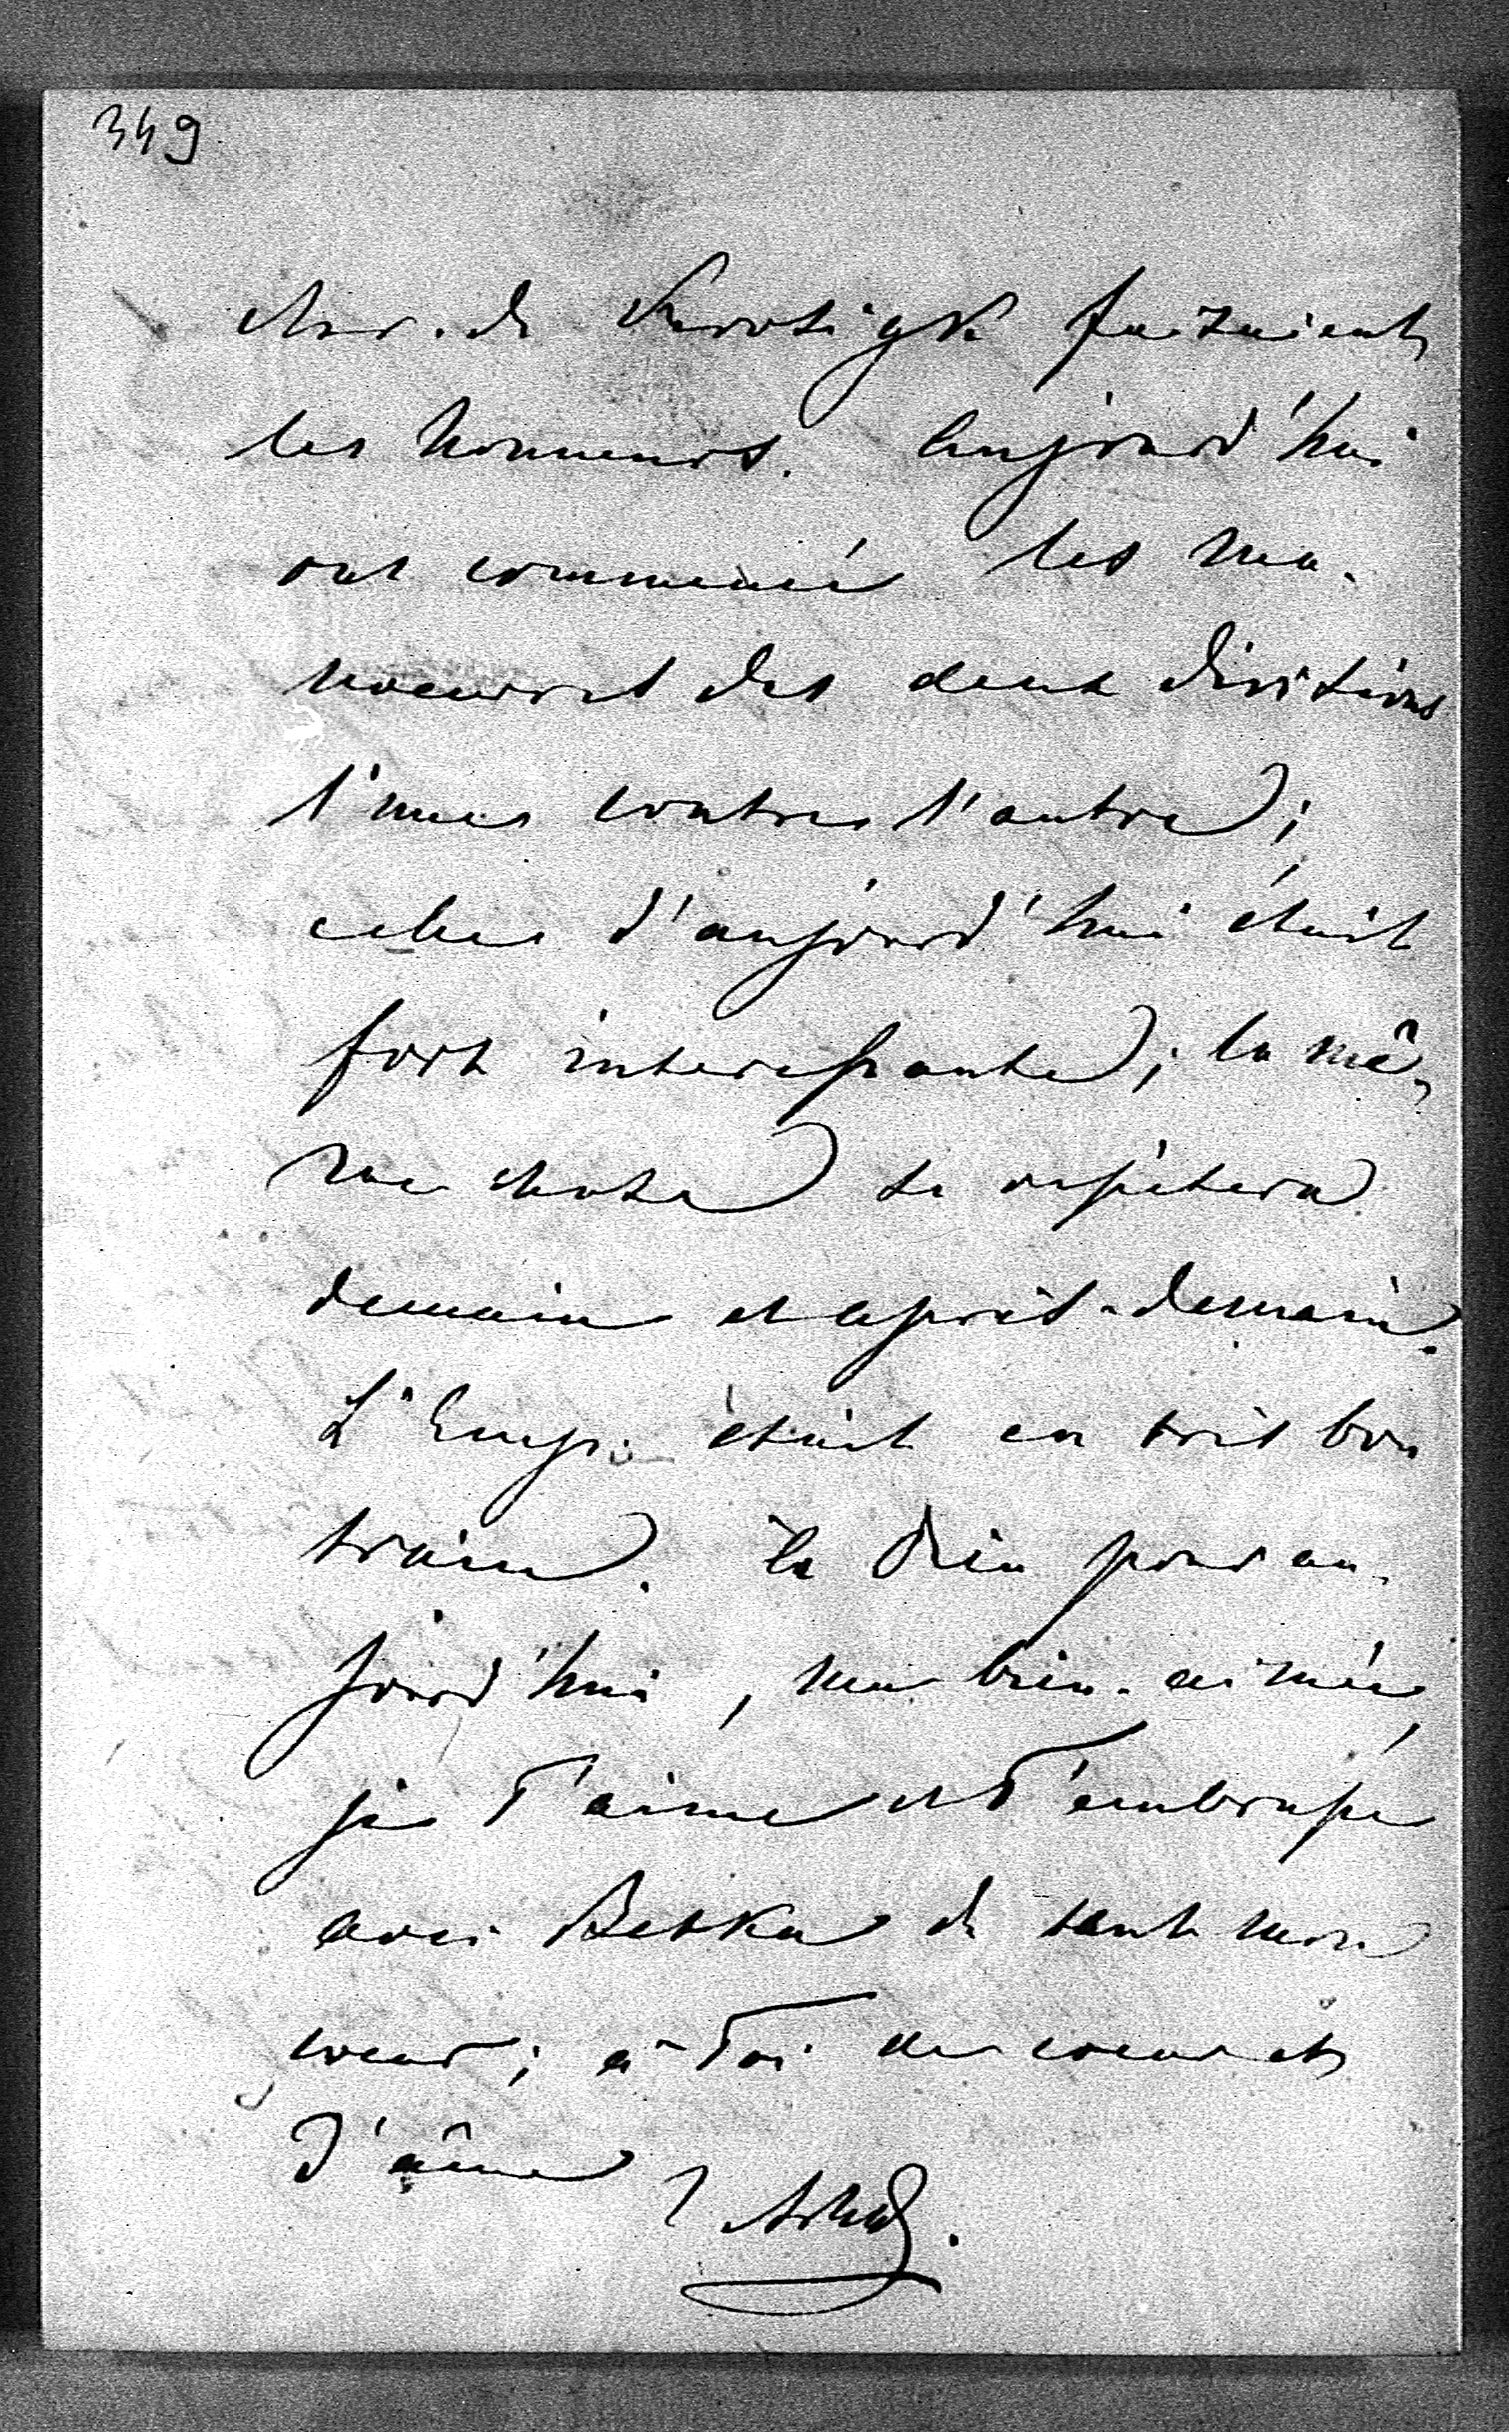 349
Mr. de Krosigk faisaient
les honneurs. Aujourd'hui
ont commencé les ma-
noeuvres des deux divisions
l'une contre l'autre;
celle d'aujourd'hui était
fort interessante; la mê-
me chose se repétera
demain et après-demain.
L'Emp. était en très bon
train. à Dieu pour au-
jourd'hui, ma bien-aimée,
je T'aime et T'embrasse
avec Betka de tout mon
coeur; à Toi de coeur et
d'âme